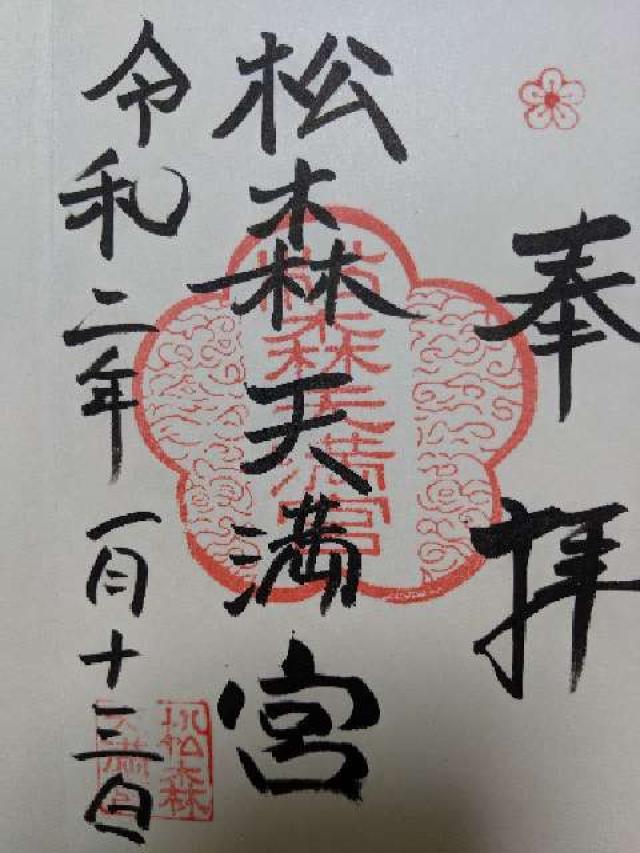 奉拝
松森天満宮
松森天満宮
令和二年一月十三日
松森
天満宮